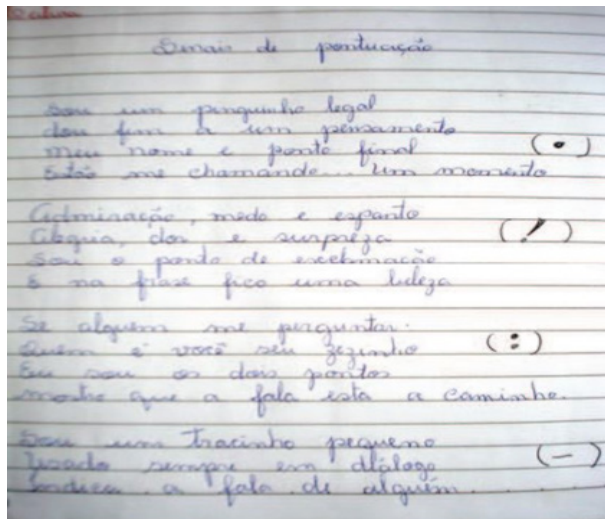 Sinais de pontuação
Sou um pinguinho legal
dou fim a um pensamento
meu nome e ponto final (.)
Estão me chamando... um momento
Admiração, medo e espanto
Alegria, dor e surpreza (!)
Sou o ponto de exclamação
E na frase fico uma beleza
Se alguem me perguntar.
Quem é você seu zezinho (:)
Eu sou os dois pontos
mostro que a fala esta a caminho.
Sou um tracinho pequeno
Usado sempre em diálogo (-)
Indica a fala de alguém....